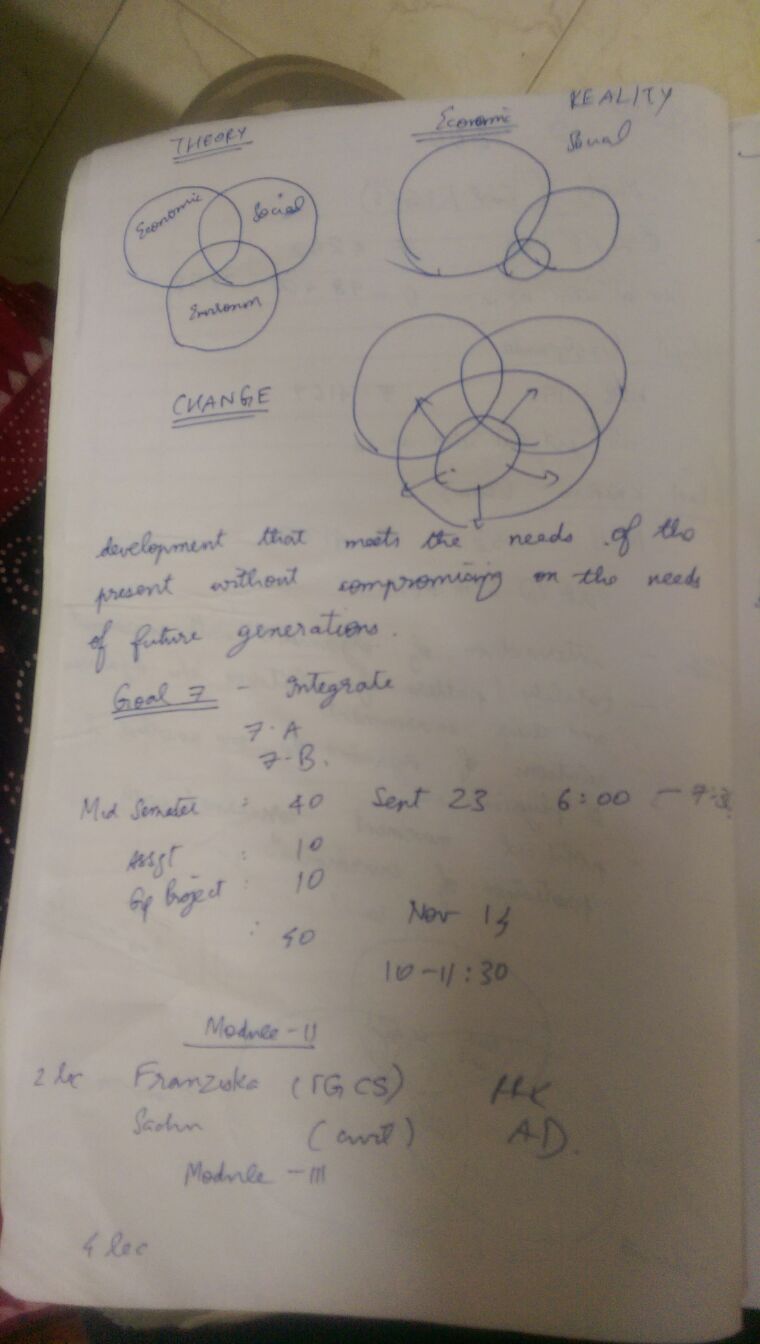 THEORY
Economic
REALITY
Social
Economic
Social
Environm
CHANGE
development that meets the needs of the
present without compromizing on the needs
of future generations.
Goal 7 - Integrate
7.A
7.B.
Mid Semester : 40 Sept 23 6:00 - 7:3
Assgt : 10
Gp Project : 10
Nov 14
: 40
10-11:30
Module - II
2 lec Franziska (IGCS)
(civil) AD.
Module - III
4 lec